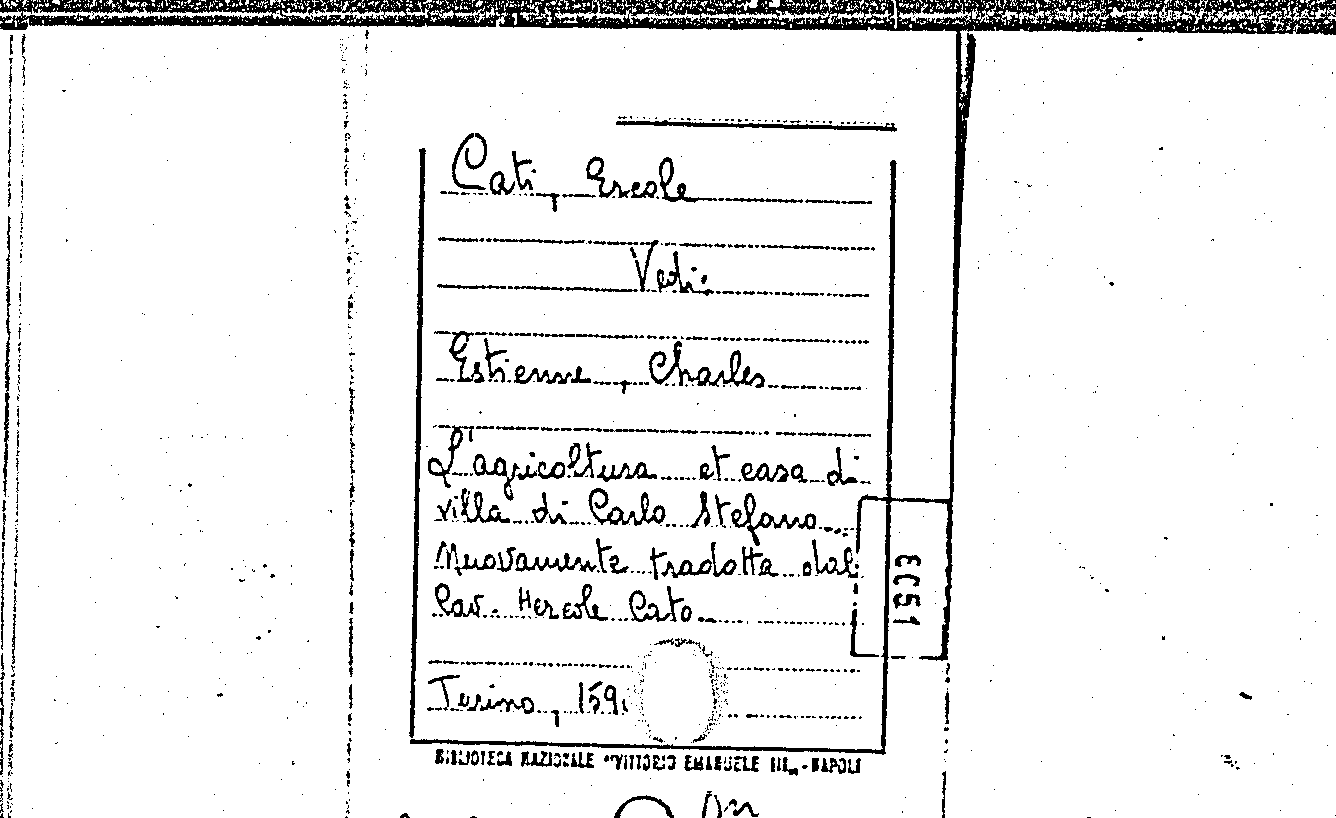 Cati, Ercole
Vedi:
Estienne, Charles
L'agricoltura et casa di
villa di Carlo Stefano...
Nuovamente tradotta dal
Cav. Hercole Cato.
Torino, 159
EC51
BIBLIOTECA NAZIONALE "VITTORIO EMANUELE III" - NAPOLI